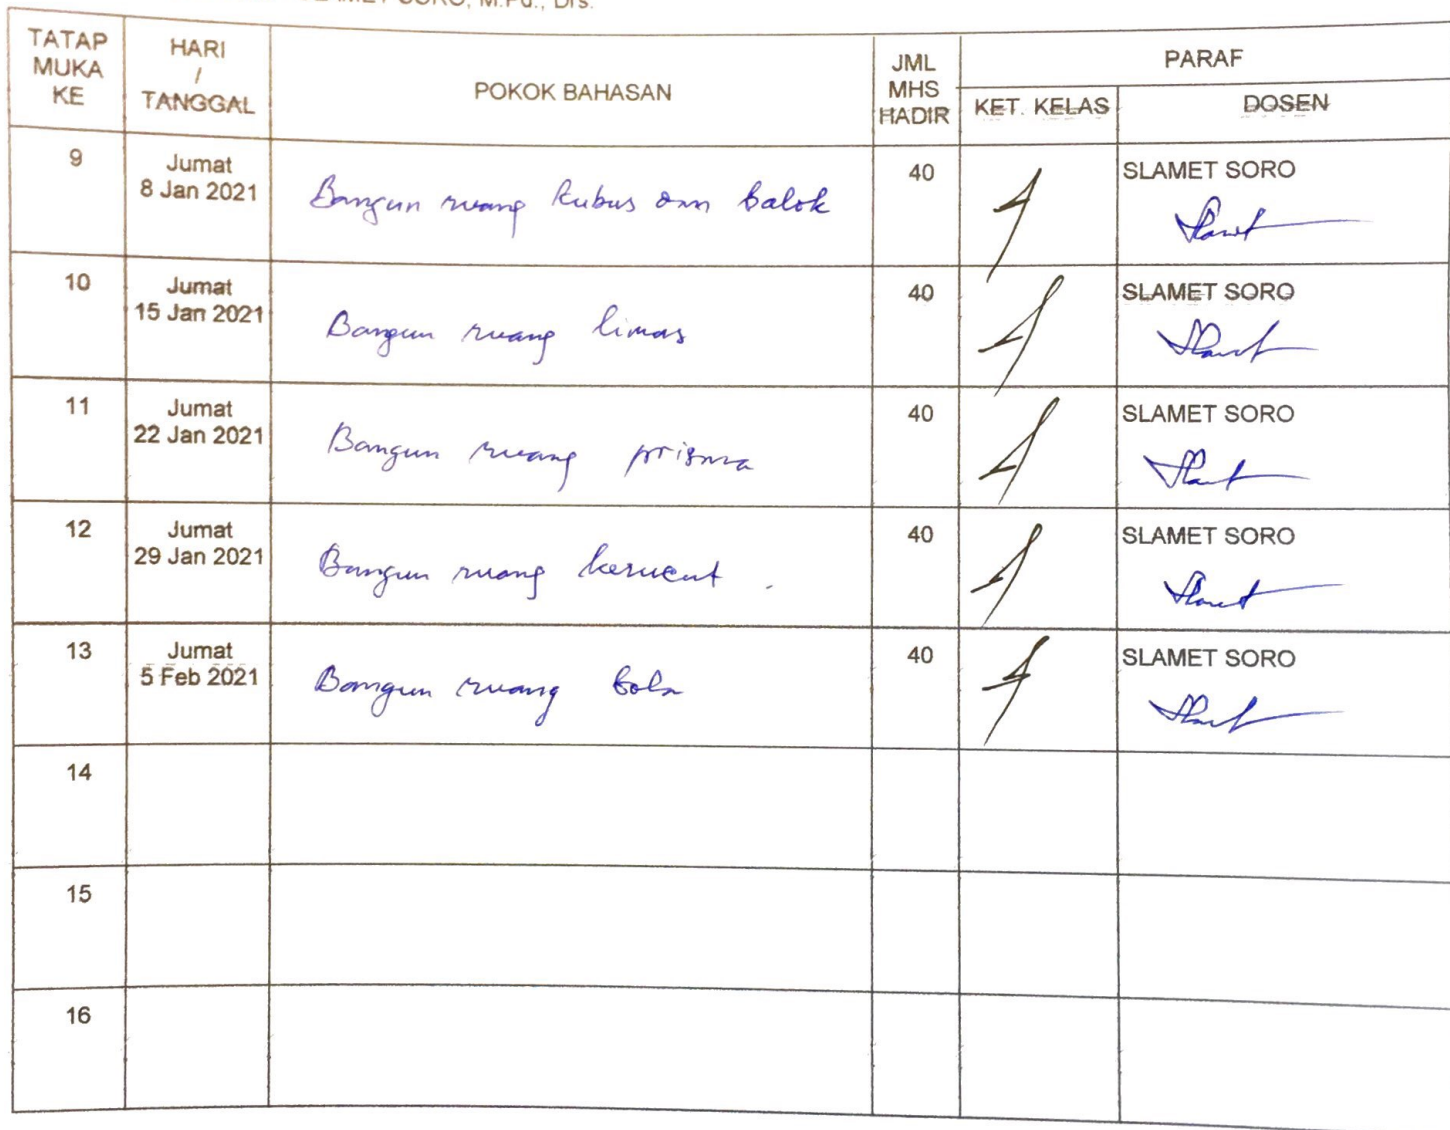 SLAMET SORO, M.Pd., Drs.
TATAP MUKA KE
HARI / TANGGAL
POKOK BAHASAN
JML MHS HADIR
PARAF
KET. KELAS
DOSEN
9
Jumat
8 Jan 2021
Bangun ruang kubus dan balok
40
SLAMET SORO
10
Jumat
15 Jan 2021
Bangun ruang limas
40
SLAMET SORO
11
Jumat
22 Jan 2021
Bangun ruang prisma
40
SLAMET SORO
12
Jumat
29 Jan 2021
Bangun ruang kerucut
40
SLAMET SORO
13
Jumat
5 Feb 2021
Bangun ruang bola
40
SLAMET SORO
14
15
16